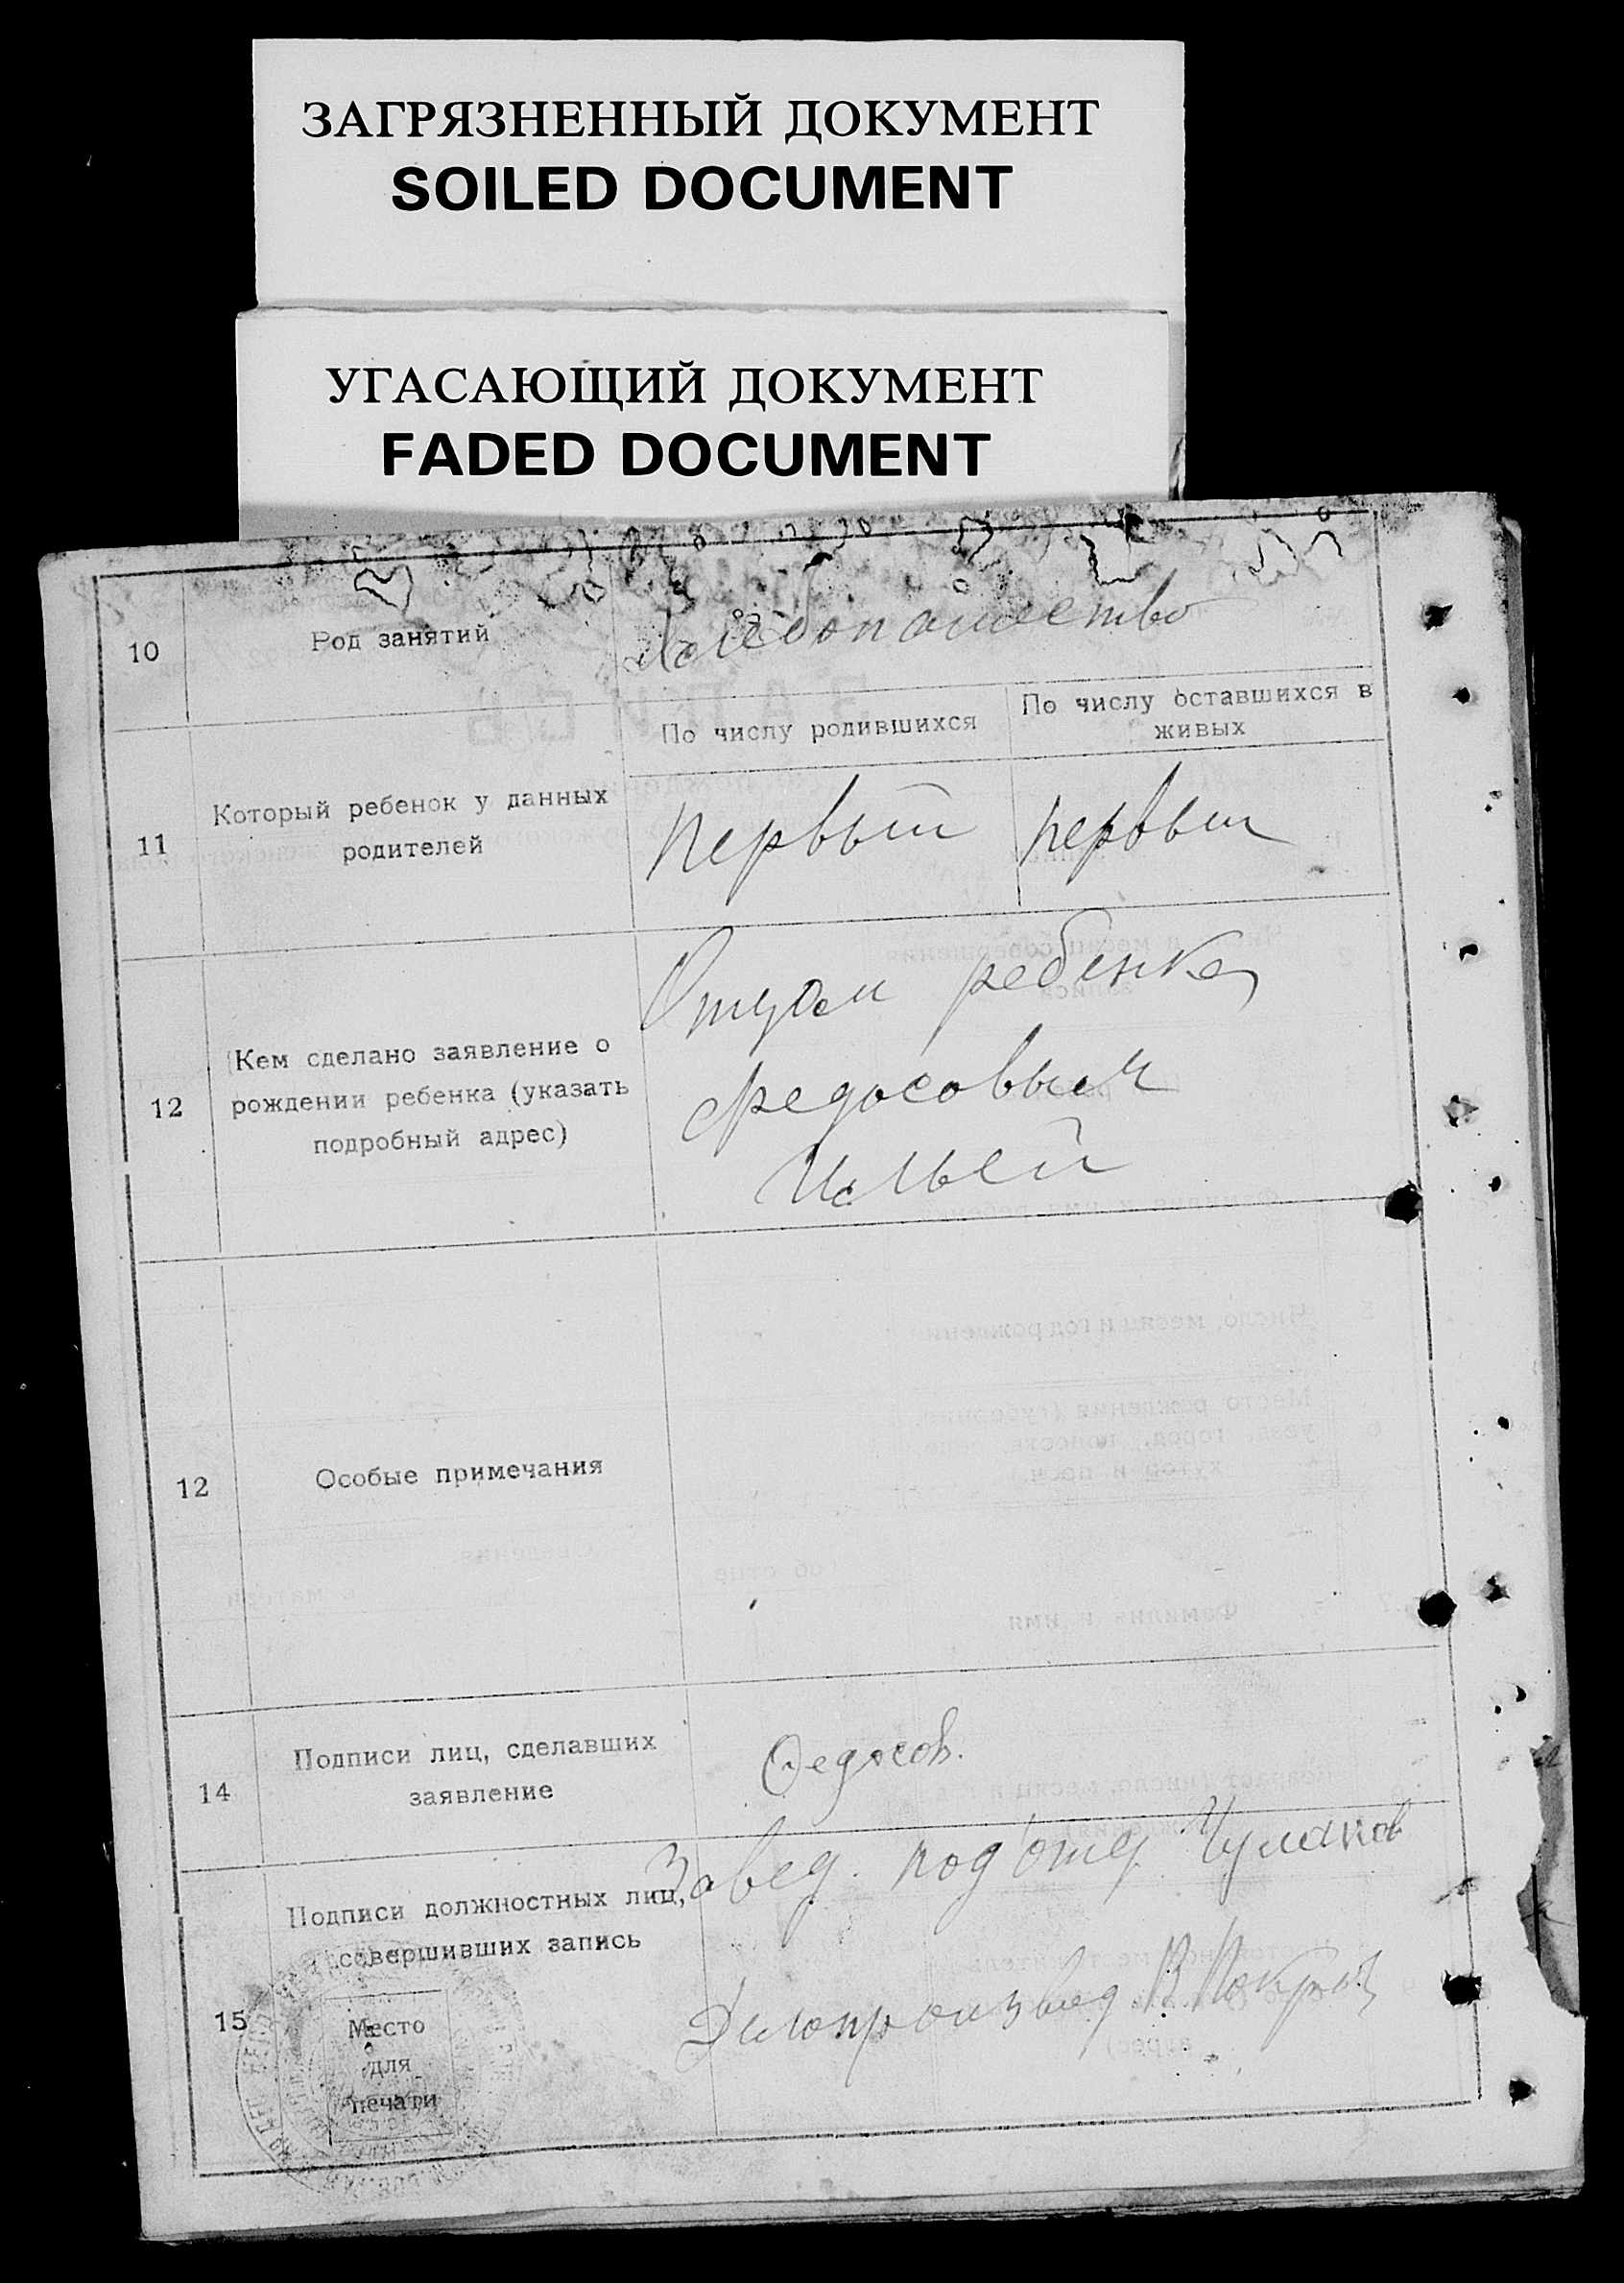 ЗАГРЯЗНЕННЫЙ ДОКУМЕНТ
SOILED DOCUMENT
УГАСАЮЩИЙ ДОКУМЕНТ
FADED DOCUMENT
10
Род занятий
Хлебопашество
По числу родившихся
По числу оставшихся в
живых
11
Который ребенок у данных
родителей
первый
первый
12
Кем сделано заявление о
рождении ребенка (указать
подробный адрес)
Отцом ребенка
Федосовым
Ильей
12
Особые примечания
14
Подписи лиц, сделавших
заявление
Федосов.
15
Подписи должностных лиц,
совершивших запись
Место
для
печати
Завед. подотд.
Делопроизвед.